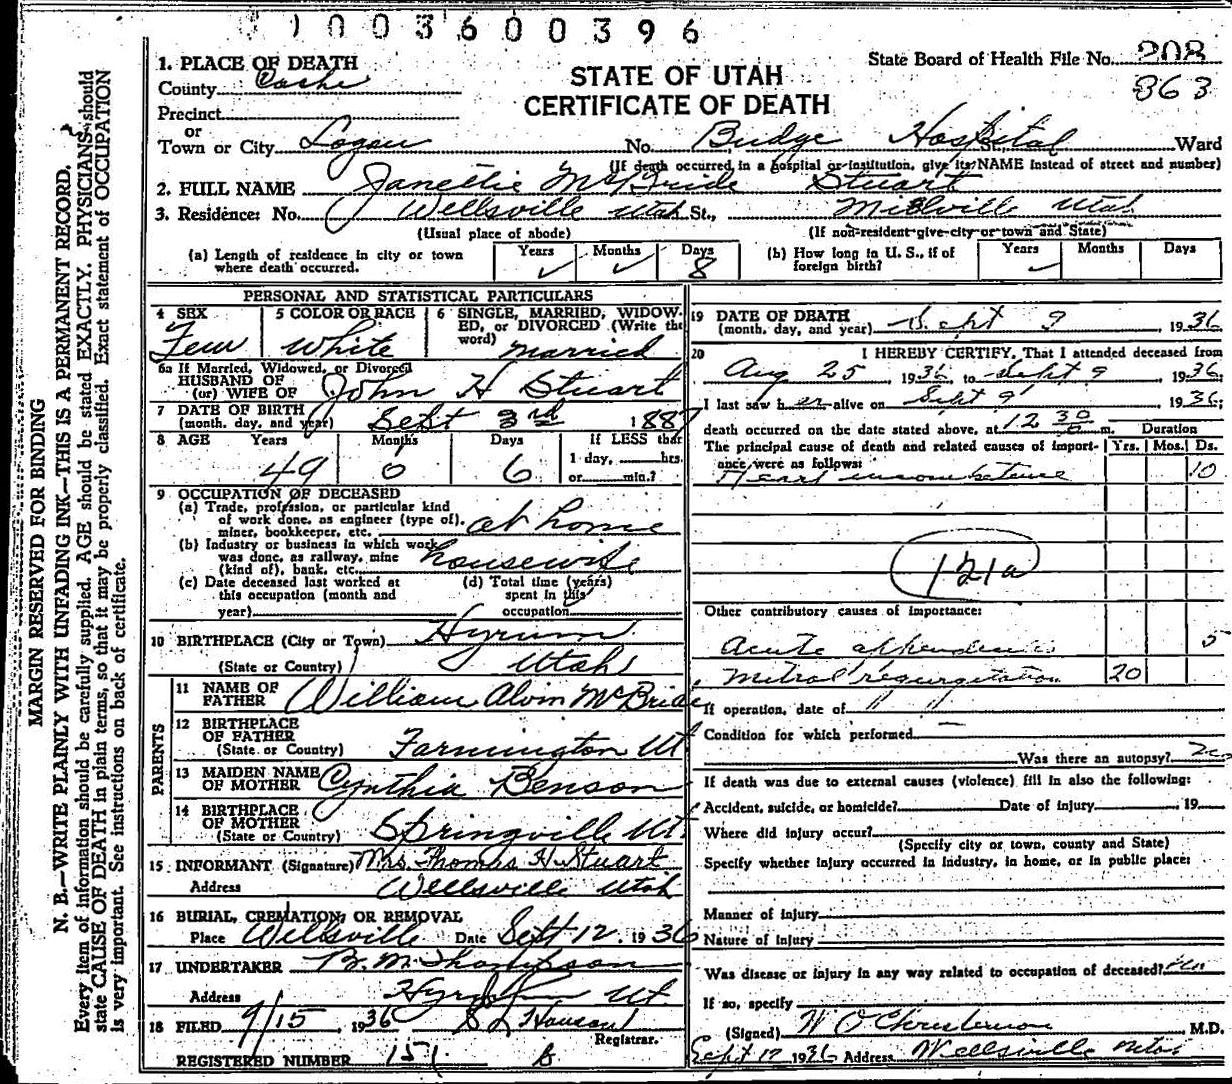 1003600396
State Board of Health File No. 208
363
STATE OF UTAH
CERTIFICATE OF DEATH
1. PLACE OF DEATH
County Cache
Precinct
or
Town or City Logan No. Budge Hospital St., Ward
(If death occurred in a hospital or institution, give its NAME instead of street and number)
2. FULL NAME Janettie McBride Stuart
3. Residence: No. Wellsville Utah St., Millville Utah
(Usual place of abode) (If non-resident give city or town and State)
(a) Length of residence in city or town where death occurred. Years ✓ Months ✓ Days 8
(b) How long in U. S., if of foreign birth? Years ✓ Months Days
PERSONAL AND STATISTICAL PARTICULARS
4 SEX Fem
5 COLOR OR RACE White
6 SINGLE, MARRIED, WIDOWED, or DIVORCED (Write the word) Married
6a If Married, Widowed, or Divorced
HUSBAND OF
(or) WIFE OF John H Stuart
7 DATE OF BIRTH
(month, day, and year) Sept 3rd 1887
8 AGE Years 49 Months 0 Days 6 If LESS than 1 day, hrs. or min.?
9 OCCUPATION OF DECEASED
(a) Trade, profession, or particular kind of work done, as engineer (type of), miner, bookkeeper, etc. at home
(b) Industry or business in which work was done, as railway, mine (kind of), bank, etc. housewife
(c) Date deceased last worked at this occupation (month and year)
(d) Total time (years) spent in this occupation
10 BIRTHPLACE (City or Town) Hyrum
(State or Country) Utah
PARENTS
11 NAME OF FATHER William Alvin McBride
12 BIRTHPLACE OF FATHER
(State or Country) Farmington Ut
13 MAIDEN NAME OF MOTHER Cynthia Benson
14 BIRTHPLACE OF MOTHER
(State or Country) Springville Ut.
15 INFORMANT (Signature) Mrs. Thomas H Stuart
Address Wellsville Utah
16 BURIAL, CREMATION, OR REMOVAL
Place Wellsville Date Sept 12, 1936
17 UNDERTAKER B. M. Thompson
Address Hyrum Ut
18 FILED 9/15, 1936
Registrar.
REGISTERED NUMBER 151
19 DATE OF DEATH
(month, day, and year) Sept 9, 1936
20 I HEREBY CERTIFY, That I attended deceased from
Aug 25, 1936, to Sept 9, 1936;
I last saw her alive on Sept 9, 1936;
death occurred on the date stated above, at 12 30 m.
Duration
The principal cause of death and related causes of importance were as follows: Yrs. Mos. Ds.
Heart incompetence 10
121a
Other contributory causes of importance:
Acute appendicitis 5
Mitral regurgitation 20
If operation, date of " "
Condition for which performed
Was there an autopsy? no
If death was due to external causes (violence) fill in also the following:
Accident, suicide, or homicide? Date of injury 19
Where did injury occur?
(Specify city or town, county and State)
Specify whether injury occurred in industry, in home, or in public place:
Manner of injury
Nature of injury
Was disease or injury in any way related to occupation of deceased?
If so, specify
(Signed) W O Christenson M.D.
Sept 12 1936 Address Wellsville Utah
MARGIN RESERVED FOR BINDING
N. B.—WRITE PLAINLY WITH UNFADING INK—THIS IS A PERMANENT RECORD.
Every item of information should be carefully supplied. AGE should be stated EXACTLY. PHYSICIANS should
state CAUSE OF DEATH in plain terms, so that it may be properly classified. Exact statement of OCCUPATION
is very important. See instructions on back of certificate.